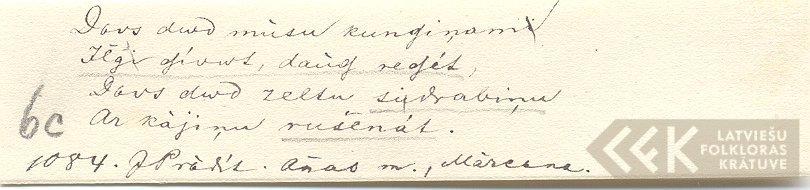 Dovs dwd mūsu kungiņami
Ilgi dívwt, daūg redzét,
Dovs dwd zeltu sidrabiņu
Ar kàjiņu rušenát.
6c
1084. J Prādít. Aņas m., Màrcana.
LATVIEŠU
FOLKLORAS
KRĀTUVE